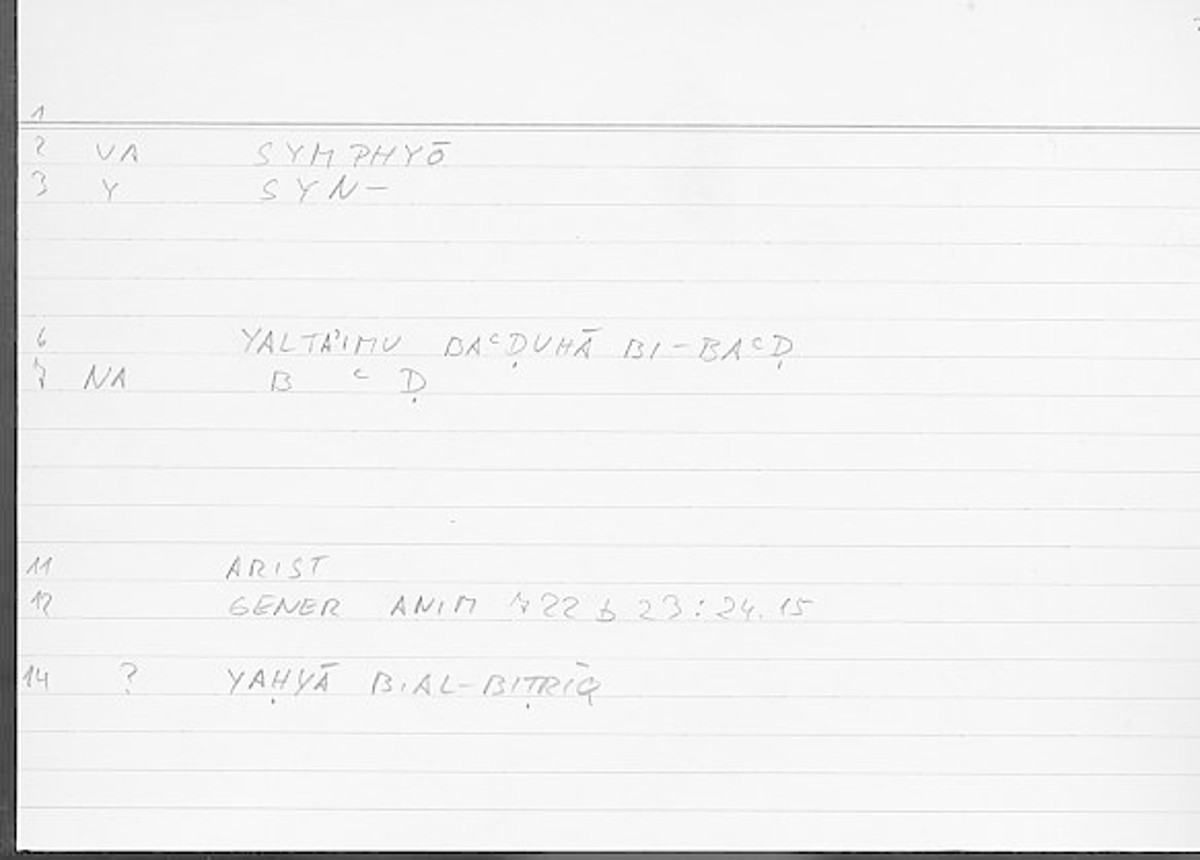 1
2 VA SYMPHYŌ
3 Y SYN-
6 YALTAʾIMU BAʿḌUHĀ BI-BAʿḌ
7 NA B ʿ Ḍ
11 ARIST
12 GENER ANIM 722 b 23:24.15
14 ? YAḤYĀ B.AL-BIṬRĪQ